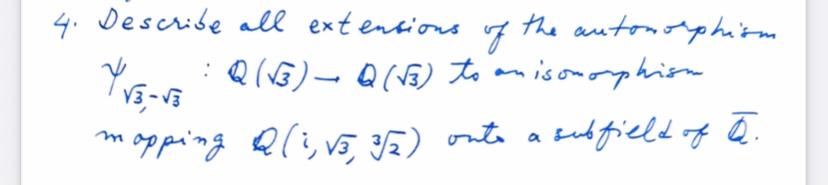 4. Describe all extensions of the automorphism
ψ√3,-√3 : Q(√3) → Q(√3) to an isomorphism
mapping Q(i, √3, ∛2) onto a subfield of Q̅.